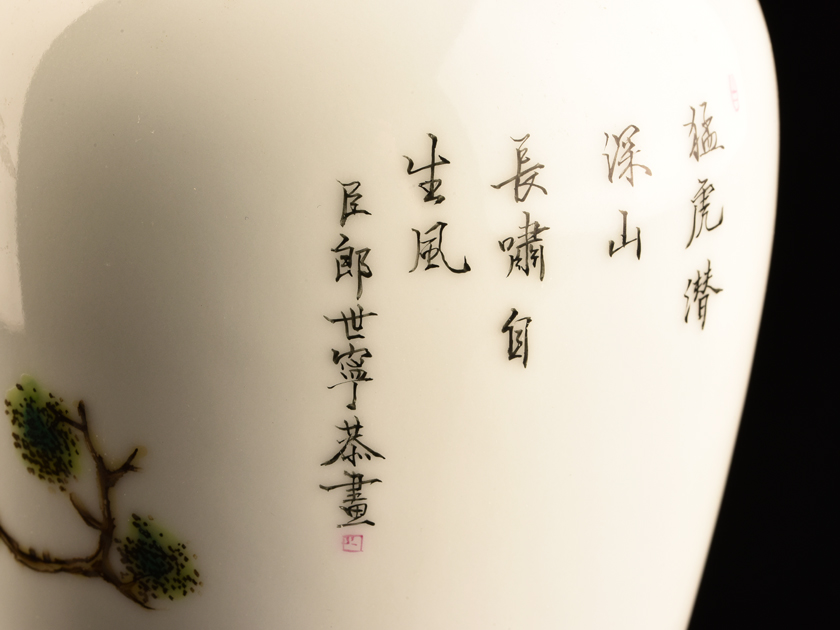 猛虎潛
深山
長嘯自
生風
臣郎世寧恭畫